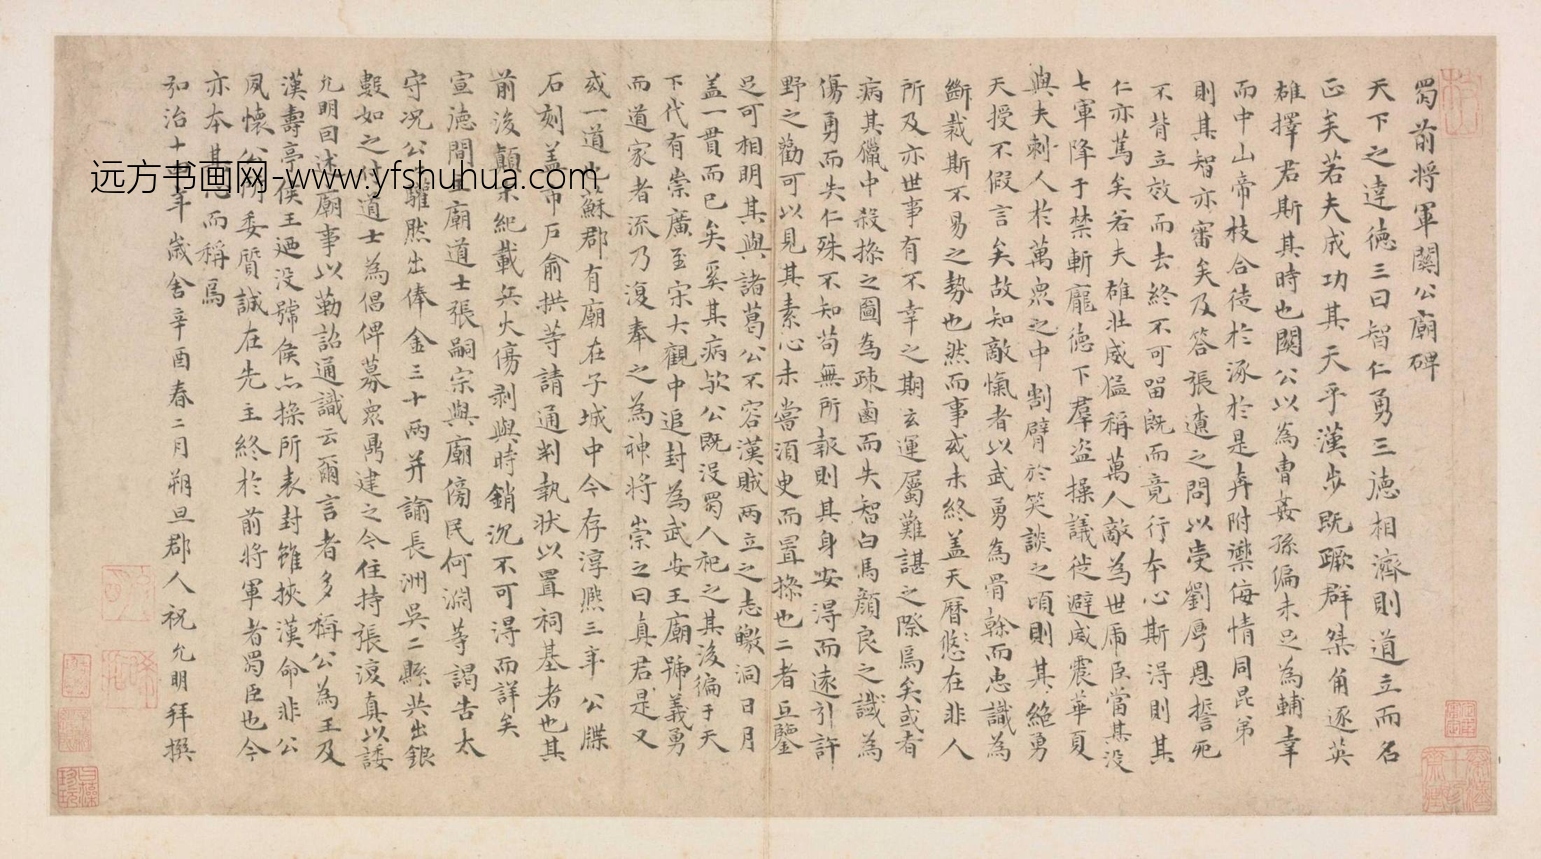 蜀前將軍關公廟碑
天下之達德三曰智仁勇三德相濟則道立而名
正矣若夫成功其天乎漢步既蹶群桀角逐英
雄擇君斯其時也關公以為曹姦孫偏未足為輔幸
而中山帝枝合徒於涿於是奔附禦侮情同昆弟
則其智亦審矣及答張遼之問以受劉厚恩誓死
不背立效而去終不可留既而竟行本心斯得則其
仁亦篤矣若夫雄壯威猛稱萬人敵為世虎臣當其沒
七軍降于禁斬龐德下羣盜操議徙避威震華夏
與夫刺人於萬衆之中割臂於笑談之頃則其絕勇
天授不假言矣故知敵愾者以武勇為骨幹而忠識為
斷裁斯不易之勢也然而事或未終蓋天曆悠在非人
所及亦世事有不幸之期玄運屬難諶之際焉矣或者
病其獵中殺操之圖為疎鹵而失智白馬顏良之誠為
傷勇而失仁殊不知苟無所報則其身安得而遠引許
野之勸可以見其素心未嘗須臾而置操也二者互鑒
足可相明其與諸葛公不容漢賊兩立之志皦洞日月
盖一貫而已矣奚其病歟公既沒蜀人祀之其後徧于天
下代有崇廣至宋大觀中追封為武安王廟號義勇
而道家者流乃復奉之為神將崇之曰真君是又
或一道也蘇郡有廟在子城中今存淳熙三年公牒
石刻盖市戶俞拱等請通判執狀以置祠基者也其
前後顛末紀載兵火傷剥與時銷沉不可得而詳矣
宣德間廟道士張嗣宗與廟傍民何淵等謁告太
守况公公驩然出俸金三十兩并諭長洲吳二縣共出銀
數如之付道士為倡俾募衆鳩建之今住持張復真以諉
允明曰述廟事以勒詔通識云爾言者多稱公為王及
漢壽亭侯王迺没號侯亦操所表封雖挾漢命非公
夙懷公所委質誠在先主終於前將軍者蜀臣也今
亦本其志而稱焉
弘治十四年歲舍辛酉春二月朔旦郡人祝允明拜撰
远方书画网-www.yfshuhua.com